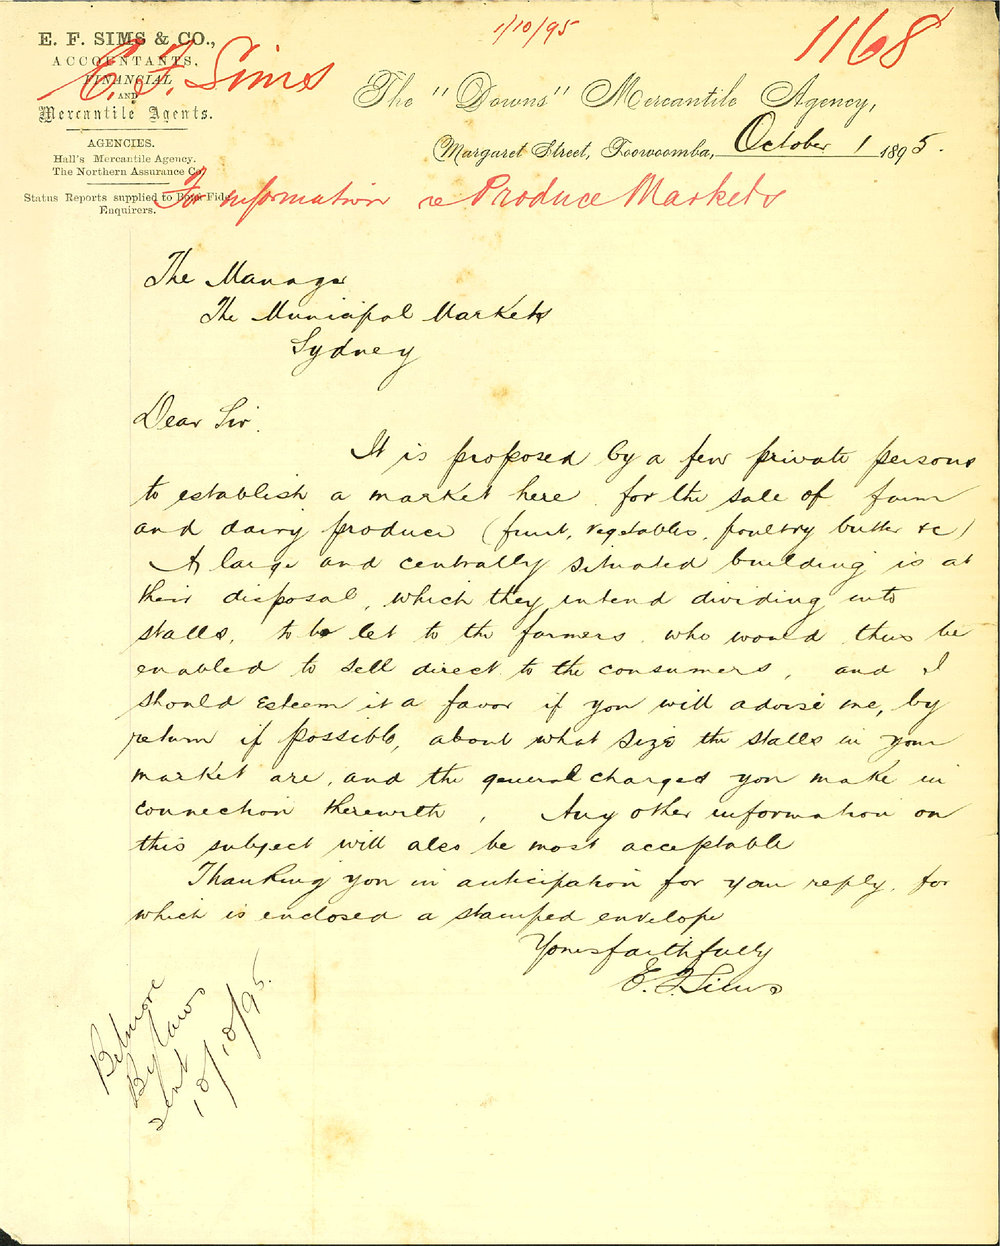 1/10/95
1168
E. F. SIMS & CO.,
ACCOUNTANTS,
FINANCIAL
AND
Mercantile Agents.
AGENCIES.
Hall's Mercantile Agency.
The Northern Assurance Co.
Status Reports supplied to Bona-Fide
Enquirers.
E. F. Sims
The "Downs" Mercantile Agency,
Margaret Street, Toowoomba, October 1 1895.
For information re Produce Markets
The Manager
The Municipal Markets
Sydney
Dear Sir.
It is proposed by a few private persons
to establish a market here for the sale of farm
and dairy produce (fruit, vegetables, poultry butter &c)
A large and centrally situated building is at
their disposal, which they intend dividing into
stalls, to be let to the farmers who would thus be
enabled to sell direct to the consumers, and I
should esteem it a favor if you will advise me, by
return if possible, about what size the stalls in your
market are, and the general charges you make in
connection therewith. Any other information on
this subject will also be most acceptable
Thanking you in anticipation for your reply, for
which is enclosed a stamped envelope
Yours faithfully
E. F. Sims
Belmore
Bylaws
sent
10/10/95.